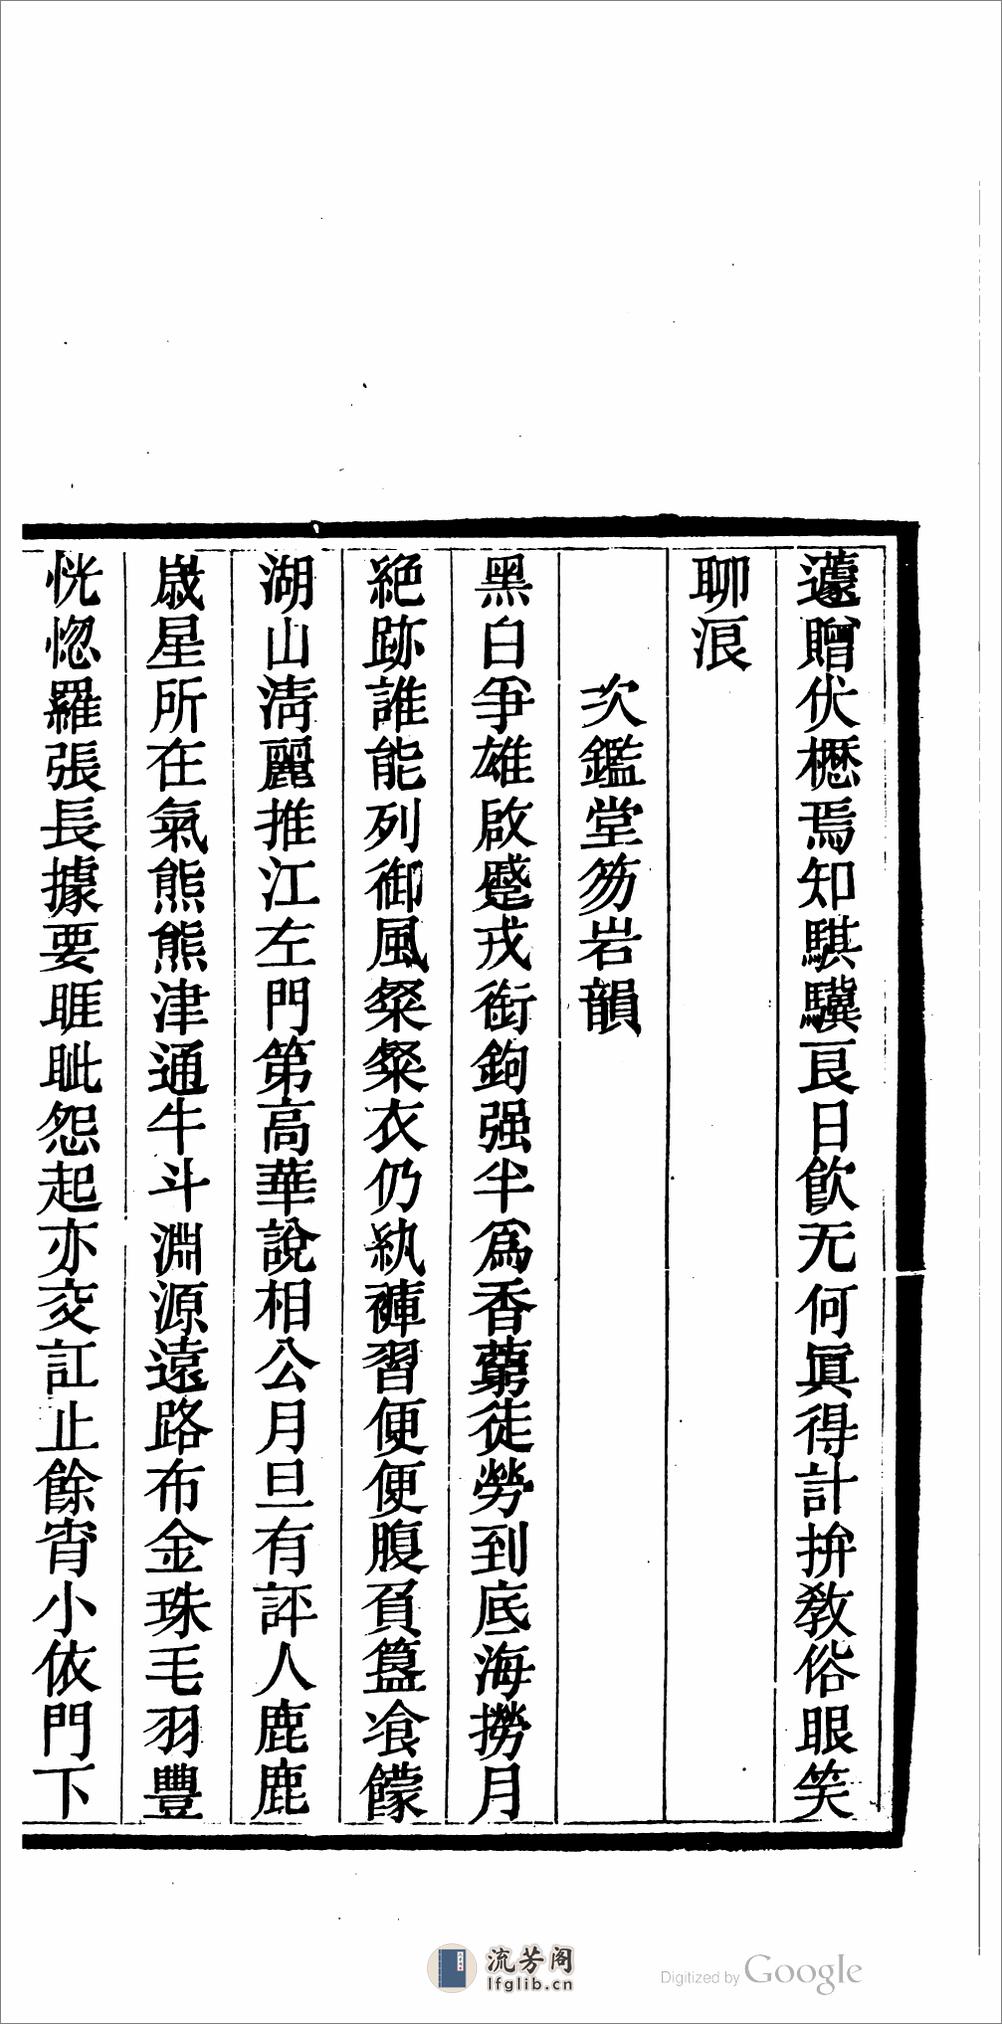 蘧贈伏櫪焉知騏驥良日飮无何眞得計拚敎俗眼笑
聊浪
次鑑堂笏岩韻
黑白爭雄啟蹙戎銜鉤强半爲香藭徒勞到底海撈月
絕跡誰能列御風粲粲衣仍紈褲習便便腹負簋飧饛
湖山淸麗推江左門第高華說相公月旦有評人鹿鹿
歲星所在氣熊熊津通牛斗淵源遠路布金珠毛羽豐
恍惚羅張長據要睚眦怨起亦交訌止餘宵小依門下
流芳阁
lfglib.cn
Digitized by Google